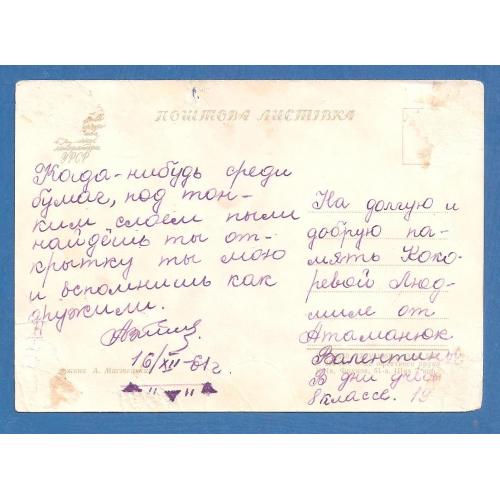 ПОШТОВА ЛИСТІВКА
УРСР
Когда-нибудь среди
бумаг, под тон-
ким слоем пыли
найдёшь ты от-
крытку ты мою
и вспомнишь как
дружили.
16/XII-61г.
На долгую и
добрую па-
мять Коко-
ревой Люд-
миле от
Атаманюк
Валентины
В дни учёбы
8 классе.